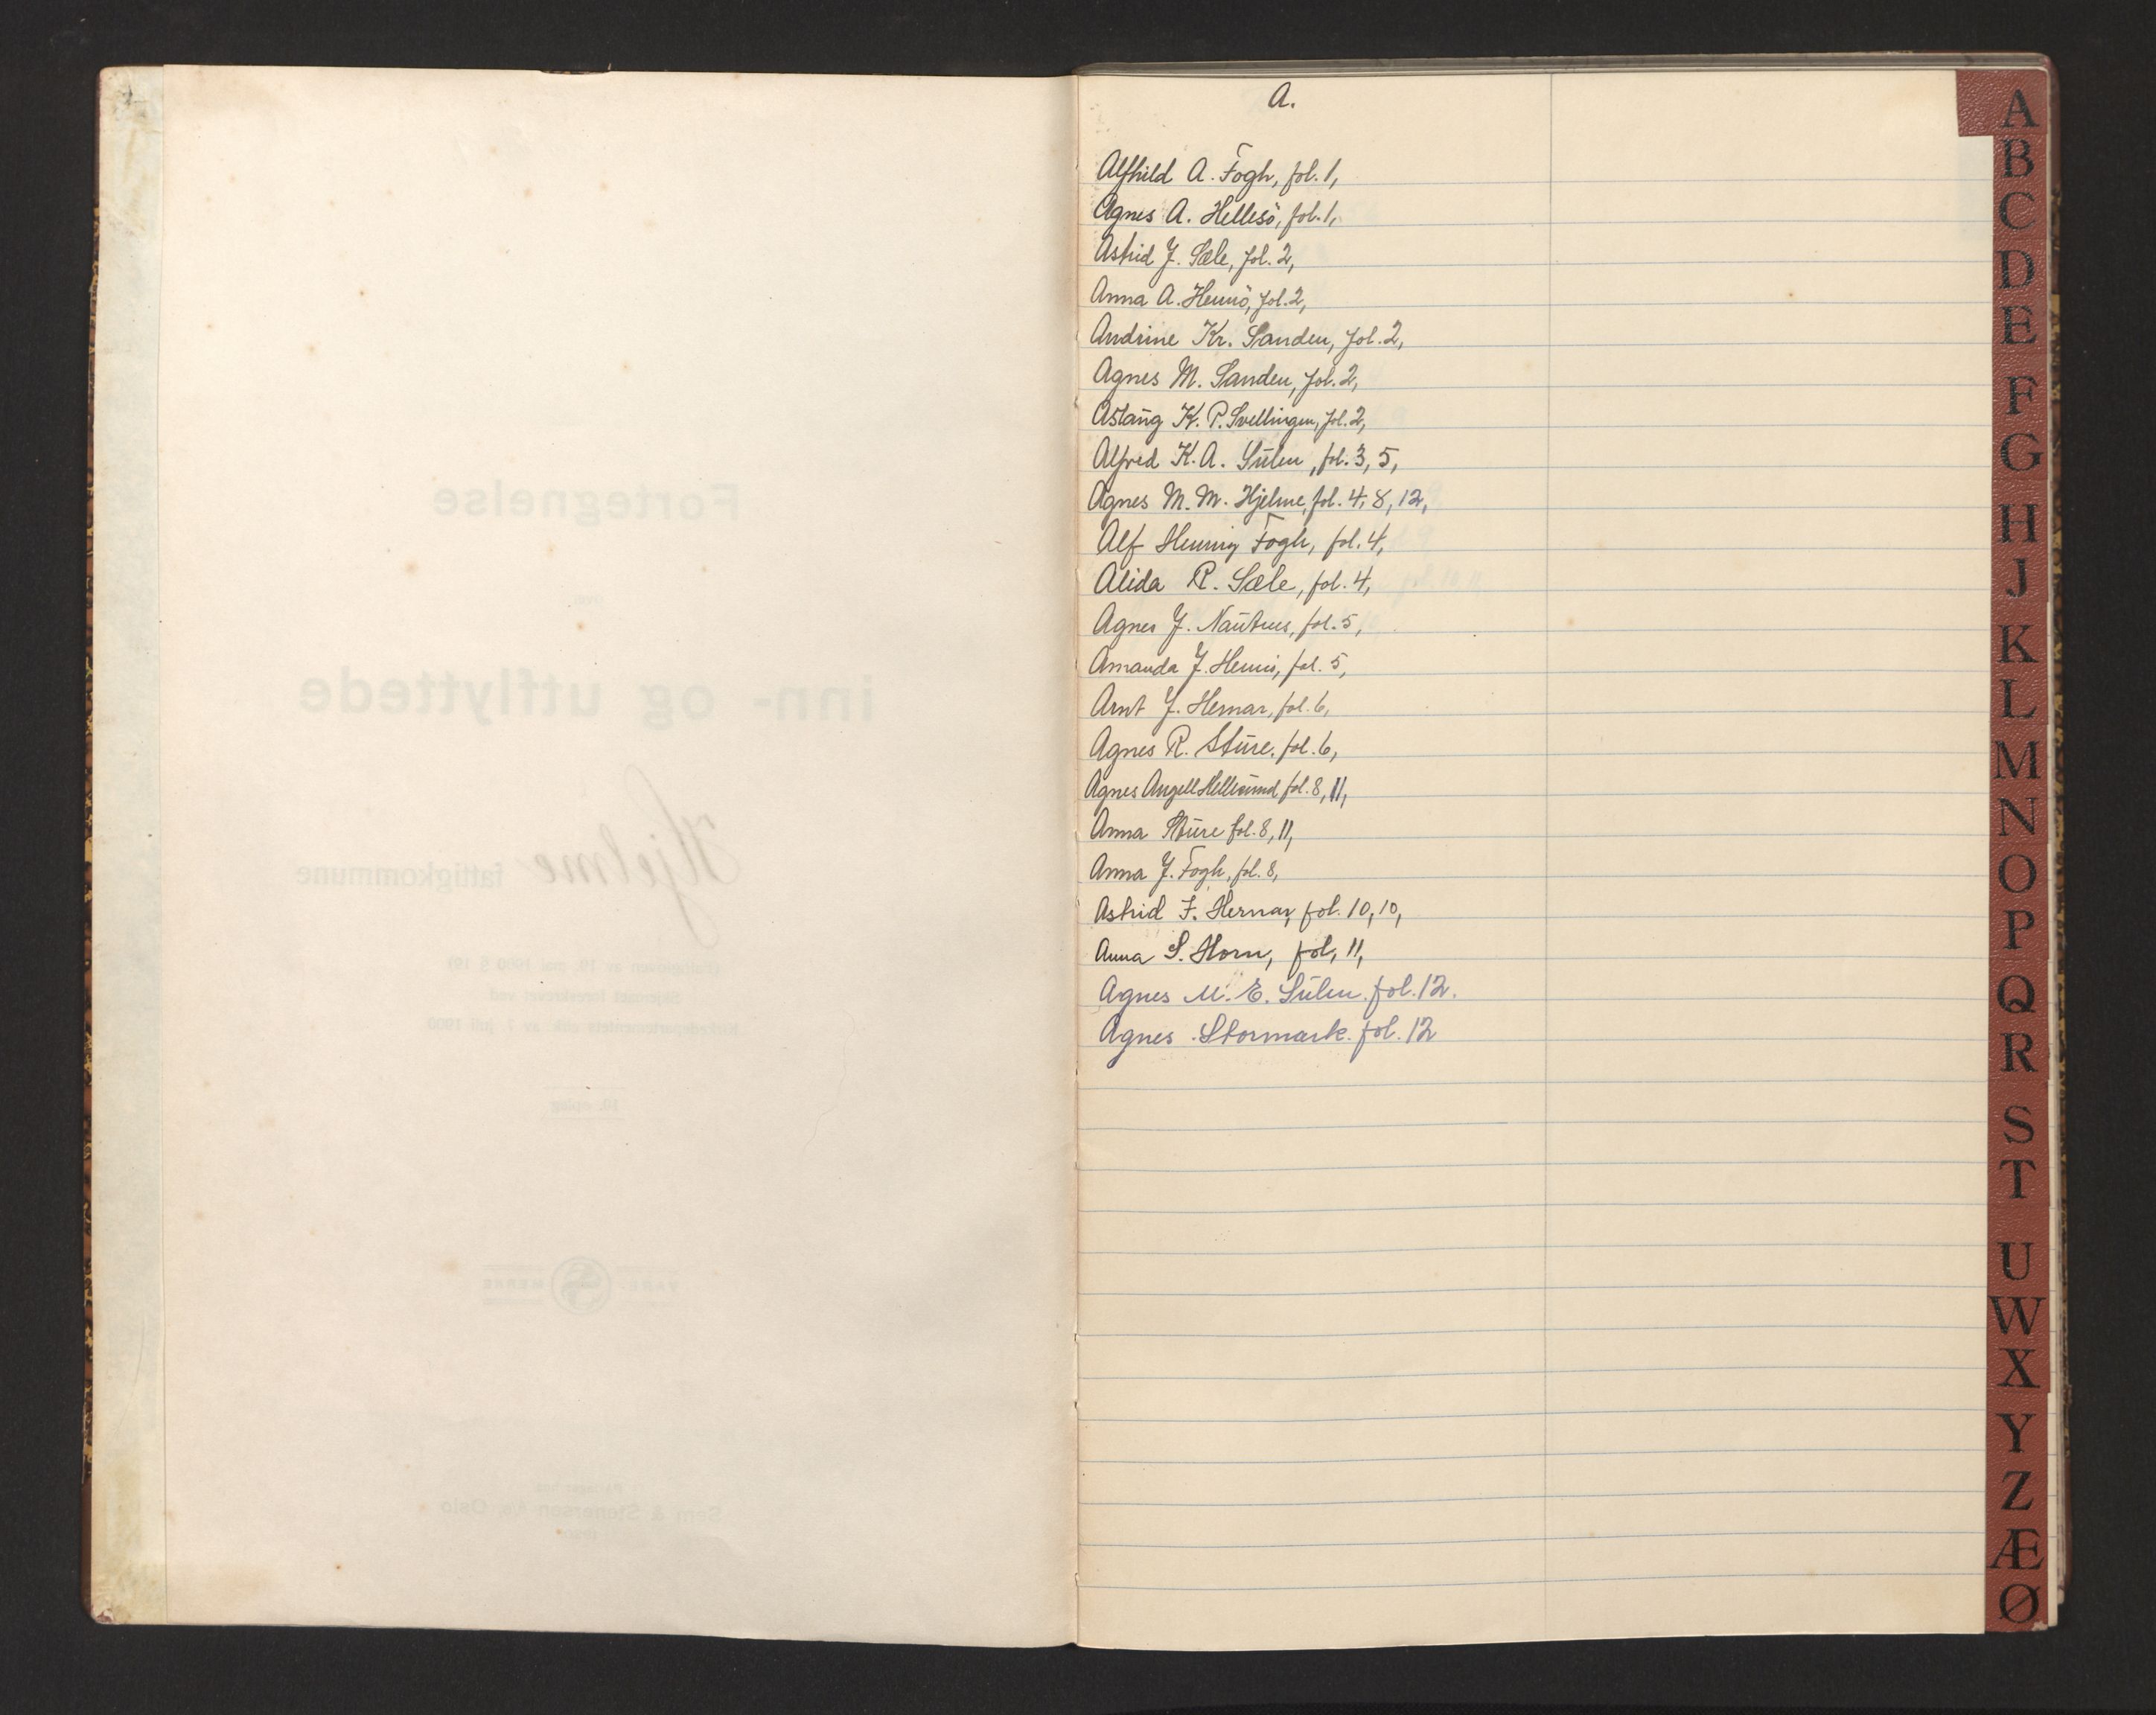 Fortegnelse
over
inn- og utflyttede
Hjelme fattigkommune
(Fattigloven av 19. mai 1900 § 19)
Skjemaet foreskrevet ved
av 7. juli 1900
10. oplag
Sem & Stenersen A/s, Oslo
A.
Alfhild A. Fogh, fol. 1,
Agnes A. Hellesö, fol. 1,
Astrid J. Sæle, fol. 2,
Anna A. Hernö, fol. 2,
Andrine Kr. Sanden, fol. 2,
Agnes M. Sanden, fol. 2,
Aslaug K. P. Svellingen, fol. 2,
Alfred K. A. Sulen, fol. 3, 5,
Agnes M. M. Hjelme, fol. 4, 8, 12,
Alf Henning Fogh, fol. 4,
Alida R. Sæle, fol. 4,
Agnes J. Nautnes, fol. 5,
Amanda J. fol. 5,
Arnt J. Hernar, fol. 6,
Agnes R. Sture. fol. 6,
Agnes Angell Hellesund fol. 8, 11,
Anna Sture fol. 8, 11,
Anna J. Fogh, fol. 8,
Astrid F. Hernar, fol. 10, 10,
Anna S. Horn, fol, 11,
Agnes M. E. Sulen. fol. 12.
Agnes Stormark. fol. 12
A
B
C
D
E
F
G
H
J
K
L
M
N
O
P
Q
R
S
T
U
W
X
Y
Z
Æ
Ø